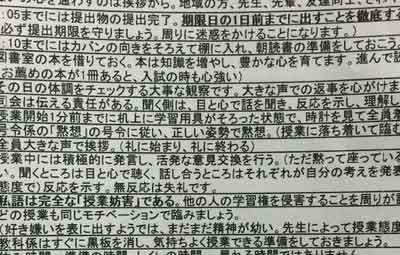 心を通わすのは挨拶から。地域の方、先生、先輩、友達同士、それ
:05までには提出物の提出完了。期限日の1日前までに出すことを徹底する
必ず提出期限を守りましょう。周りに迷惑をかけることになります。)
:10までにはカバンの向きをそろえて棚に入れ、朝読書の準備をしておこう。
図書室の本を借りておく。本は知識を増やし、豊かな心を育てます。進んで読
お薦めの本が1冊あると、入試の時も心強い)
その日の体調をチェックする大事な観察です。大きな声での返事を心がけま
司会は伝える責任がある。聞く側は、目と心で話を聞き、反応を示し、理解し
授業開始1分前までに机上に学習用具がそろった状態で、時計を見て全員着
号令係の「黙想」の号令に従い、正しい姿勢で黙想。(授業に落ち着いて臨む
全員大きな声で挨拶。(礼に始まり、礼に終わる)
授業中には積極的に発言し、活発な意見交換を行う。(ただ黙って座ってい
い。聞くところは目と心で聴き、話し合うところはそれぞれが自分の考えを発表
態度で)反応を示す。無反応は失礼です。
私語は完全な「授業妨害」である。他の人の学習権を侵害することを周りが
どの授業も同じモチベーションで臨みましょう。
(好き嫌いを表に出すようでは、まだまだ精神が幼い。先生によって授業態度
教科係はすぐに黒板を消し、気持ちよく授業できる準備をしておきましょう。